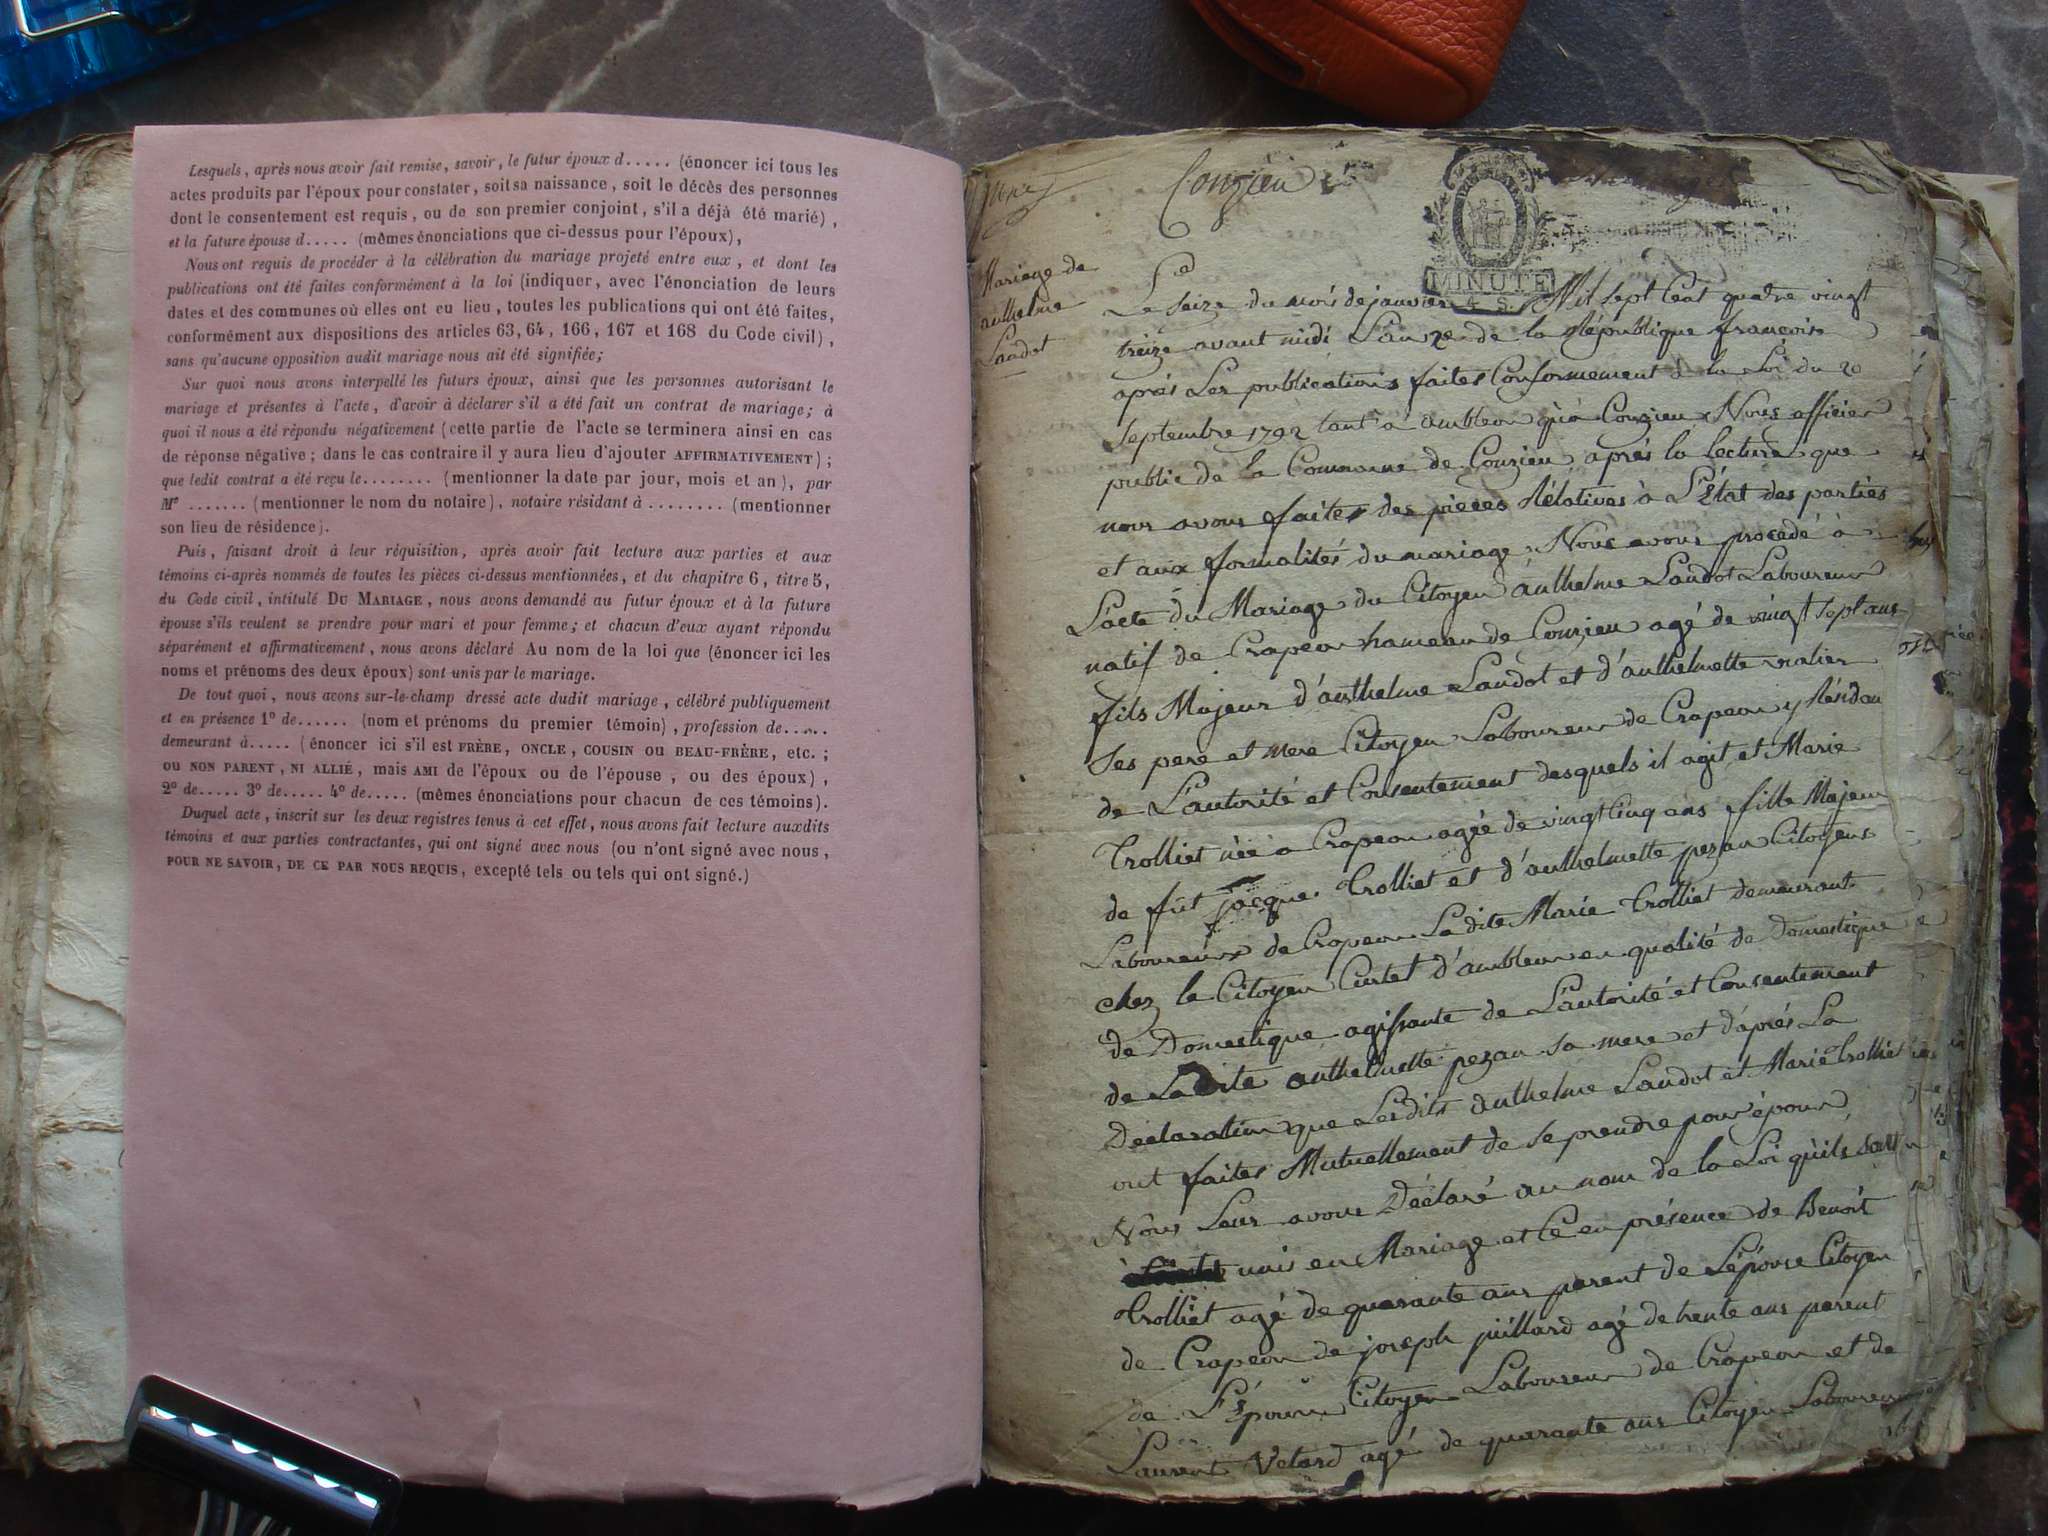 Lesquels, après nous avoir fait remise, savoir, le futur époux d..... (énoncer ici tous les
actes produits par l'époux pour constater, soit sa naissance, soit le décès des personnes
dont le consentement est requis, ou de son premier conjoint, s'il a déjà été marié),
et la future épouse d..... (mêmes énonciations que ci-dessus pour l'époux),
Nous ont requis de procéder à la célébration du mariage projeté entre eux, et dont les
publications ont été faites conformément à la loi (indiquer, avec l'énonciation de leurs
dates et des communes où elles ont eu lieu, toutes les publications qui ont été faites,
conformément aux dispositions des articles 63, 64, 166, 167 et 168 du Code civil),
sans qu'aucune opposition audit mariage nous ait été signifiée;
Sur quoi nous avons interpellé les futurs époux, ainsi que les personnes autorisant le
mariage et présentes à l'acte, d'avoir à déclarer s'il a été fait un contrat de mariage; à
quoi il nous a été répondu négativement (cette partie de l'acte se terminera ainsi en cas
de réponse négative; dans le cas contraire il y aura lieu d'ajouter AFFIRMATIVEMENT);
que ledit contrat a été reçu le........ (mentionner la date par jour, mois et an), par
Me ....... (mentionner le nom du notaire), notaire résidant à ........ (mentionner
son lieu de résidence).
Puis, faisant droit à leur réquisition, après avoir fait lecture aux parties et aux
témoins ci-après nommés de toutes les pièces ci-dessus mentionnées, et du chapitre 6, titre 5,
du Code civil, intitulé DU MARIAGE, nous avons demandé au futur époux et à la future
épouse s'ils veulent se prendre pour mari et pour femme; et chacun d'eux ayant répondu
séparément et affirmativement, nous avons déclaré Au nom de la loi que (énoncer ici les
noms et prénoms des deux époux) sont unis par le mariage.
De tout quoi, nous avons sur-le-champ dressé acte dudit mariage, célébré publiquement
et en présence 1º de...... (nom et prénoms du premier témoin), profession de.....
demeurant à..... (énoncer ici s'il est FRÈRE, ONCLE, COUSIN OU BEAU-FRÈRE, etc.;
OU NON PARENT, NI ALLIÉ, mais AMI de l'époux ou de l'épouse, ou des époux),
2º de..... 3º de..... 4º de..... (mêmes énonciations pour chacun de ces témoins).
Duquel acte, inscrit sur les deux registres tenus à cet effet, nous avons fait lecture auxdits
témoins et aux parties contractantes, qui ont signé avec nous (ou n'ont signé avec nous,
POUR NE SAVOIR, DE CE PAR NOUS REQUIS, excepté tels ou tels qui ont signé.)
Conzieu
MINUTE
4 S.
Mariage de
anthelme
Landot
Le
Le seize du mois de janvier Mil sept Cent quatre vingt
treize avant midi L'an 2e de la République francoise
après Les publications faites Conformement a la Loi du 20
septembre 1792 tant a ambleon qu'a Conzieu Nous officier
public de la Commune de Conzieu après la lecture que
nous avons faites des pieces Rélatives à L'État des parties
et aux formalités du mariage. Nous avons procédé à
L'acte du Mariage du Citoyen anthelme Landot Laboureur
natif de Crapeou hameau de Conzieu agé de vingt sept ans
fils Majeur d'anthelme Landot et d'anthelmette
Ses pere et mere Citoyen Laboureur de Crapeou y Résidan
de L'autorité et Consentement desquels il agit et Marie
Trolliet née a Crapeou agée de vingt Cinq ans fille Majeur
de fût jacque Trolliet et d'anthelmette pezan Citoyens
Laboureurs de Crapeou Ladite Marie Trolliet demeurant
chez le Citoyen Curtet d'ambleon en qualité de Domestique
de Domestique agissante de L'autorité et Consentement
de Ladite anthelmette pezan sa mere et d'après La
Déclaration que Lesdits anthelme Landot et Marie Trolliet
ont faites Mutuellement de se prendre pour époux
Nous Leur avons Déclaré au nom de la Loi qu'ils sont
unis en Mariage et Ce en présence de Benoit
Trolliet agé de quarante ans parent de L'épouse Citoyen
de Crapeou de joseph juillard agé de trente ans parent
de L'époux Citoyen Laboureur de Crapeou et de
Laurent Velard agé de quarante ans Citoyen Laboureur